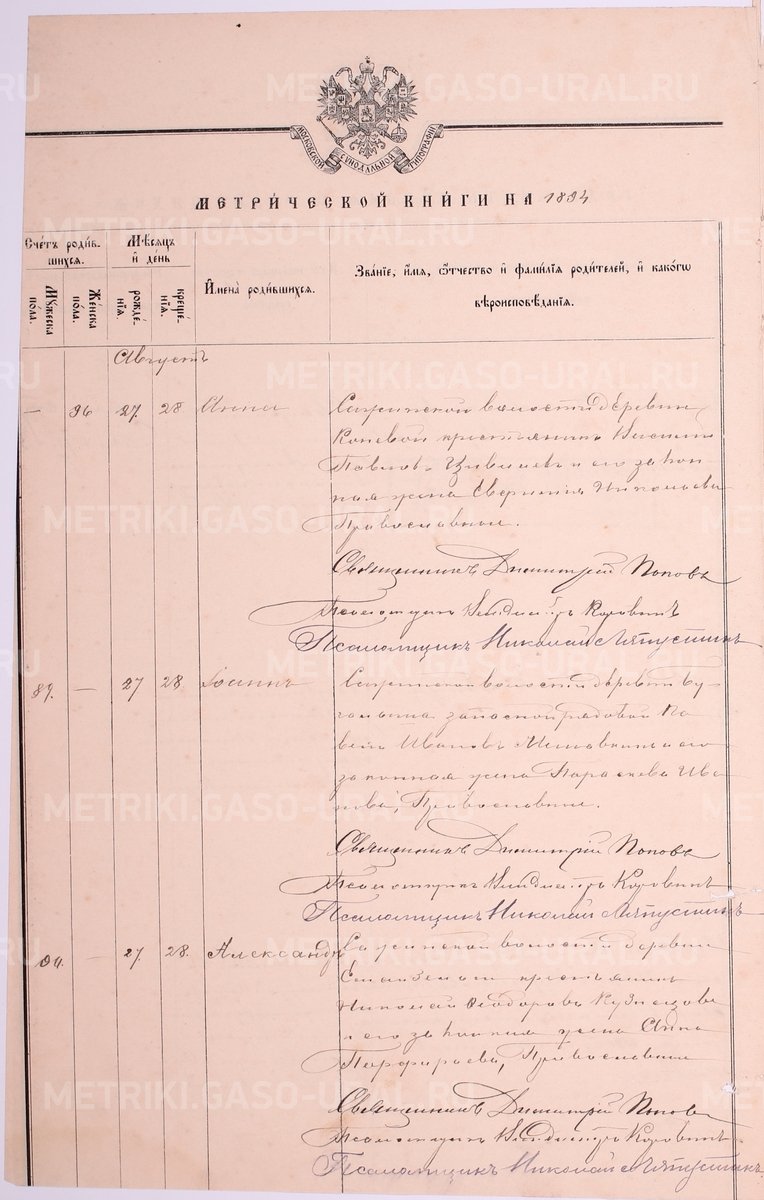 МОСКОВСКОЙ СѴНОДАЛЬНОЙ ТИПОГРАФІИ
МЕТРИ́ЧЕСКОЙ КНИ́ГИ НА 1894
Сче́тъ роди́в-
шихся.
Мѹ́жеска
по́ла.
Же́нска
по́ла.
М́ѣсяцъ
и де́нь
рожде́-
нїя.
креще́-
нїя.
Имена̀ роди́вшихся.
Зва́нїе, и́мя, ѻ́тчество и фами́лїя роди́телей, и како́гѡ
вѣроисповѣ́данїя.
Августъ
— 96 27. 28 Анна
Сажинской волости деревни
Коневой крестьянинъ
Павловъ и его закон
ная жена Николаева
Православные.
Священникъ Димитрій Поповъ
Псаломщикъ Коровинъ
Псаломщикъ Николай Ляпустинъ
89. — 27 28 Іоаннъ
Сажинской волости деревни
запасной рядовой Па
велъ Ивановъ и его
законная жена Параскева Ива
нова, Православные.
Священникъ Димитрій Поповъ
Псаломщикъ Коровинъ
Псаломщикъ Николай Ляпустинъ
90. — 27. 28. Александръ
Сажинской волости деревни
крестьянинъ
Николай Ѳеодоровъ Кузнецовъ
и его законная жена Анна
Порфирьева, Православные
Священникъ Димитрій Поповъ
Псаломщикъ Коровинъ
Псаломщикъ Николай Ляпустинъ
METRIKI.GASO-URAL.RU